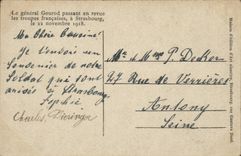 Le général Gouraud passant en revue
les troupes françaises, à Strasbourg,
le 22 novembre 1918.
Ma Chère Cousine!
Je t'envoie un
souvenir de nos
Soldat qui sont
arrivés à Strasbourg
Sophie
Charles
Mr et Mme P.
27 Rue de Verrières
Antony
Seine